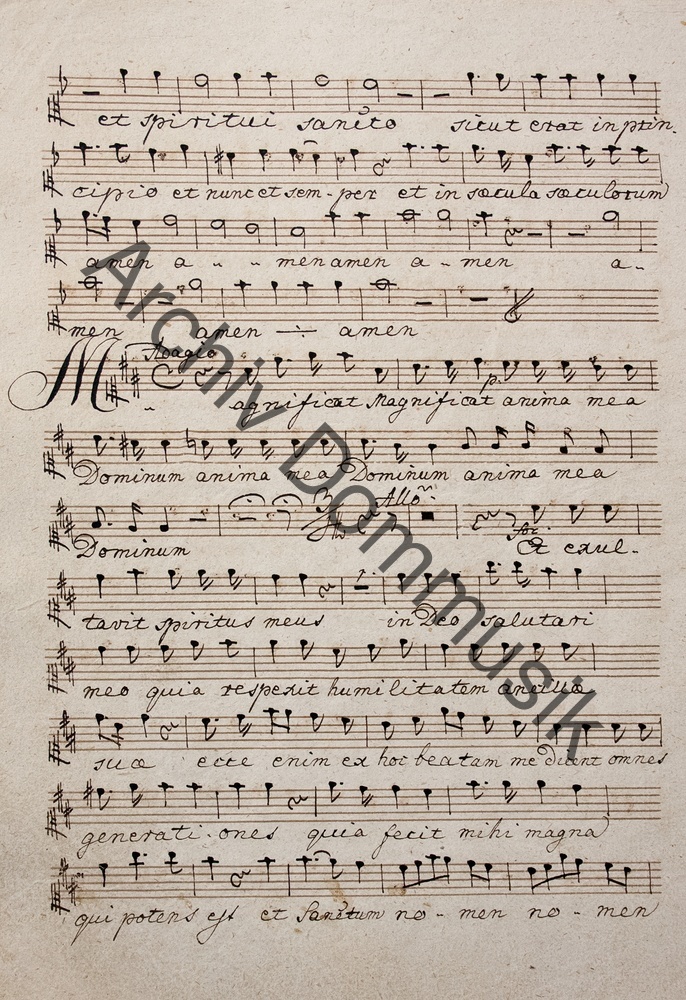 et spiritui sancto sicut erat in prin-
cipio et nunc et sem-per et in sæcula sæculorum
amen a - - men amen a - men a-
men amen ÷ amen
Adagio
Magnificat Magnificat anima mea
p.
Dominum anima mea Dominum anima mea
Allo:
Dominum Et exul-
for:
tavit spiritus meus in Deo salutari
meo quia respexit humilitatem ancillæ
suæ ecce enim ex hoc beatam me dicent omnes
generati-ones quia fecit mihi magna
qui potens est et Sanctum no-men no-men
Archiv Dommusik